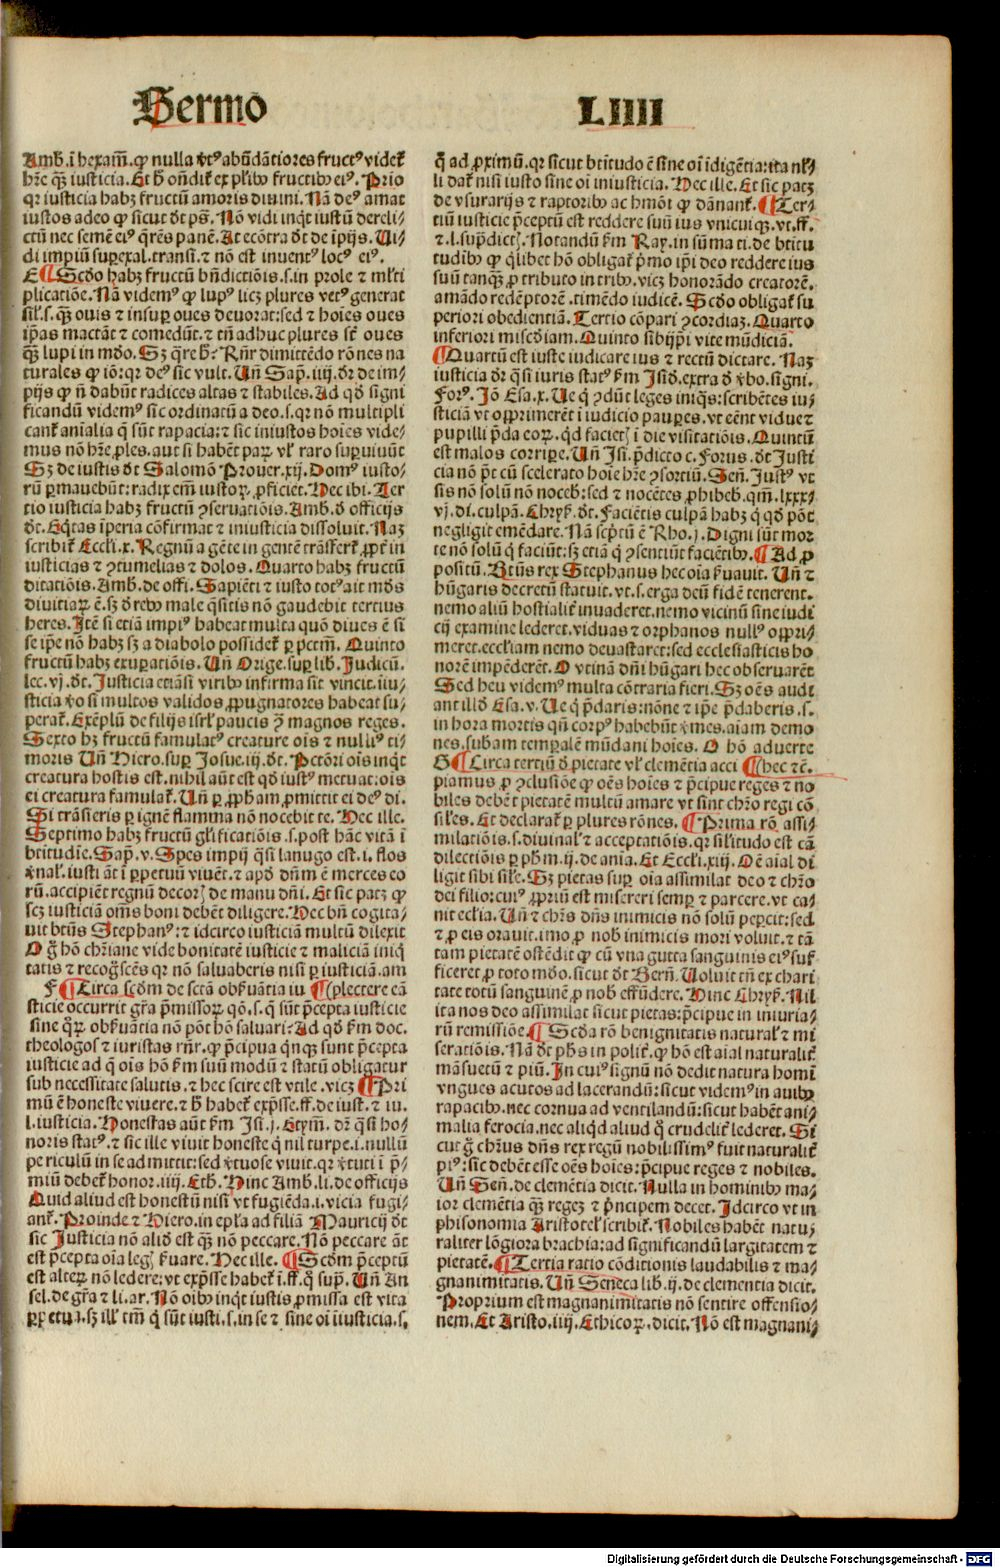 Sermo LIIII
Amb. ī hexam̄. ꝙ nulla v̄t᷒ abūdātiores fruct᷒ videt᷑
hr̄e qꝫ iusticia. Et h̄ oñdit᷑ ex pl̄ibꝰ fructibꝰ eiꝰ. Prīo
qꝛ iusticia habꝫ fructū amoris diuini. Nā deꝰ amat
iustos adeo ꝙ sicut dt̄ ps̄. Nō vidi inq̄t iustū dereli⸗
ctū nec semē eiꝰ q̄rēs panē. At ecōtra dt̄ de īpijs. Ui⸗
di impiū suꝑexal. transi. ⁊ nō est inuentꝰ locꝰ eiꝰ.
E ¶ Scd̄o habꝫ fructū bn̄dictiōis. s. in prole ⁊ ml̄ti
plicatiōe. Nā videmꝰ ꝙ lupꝰ licꝫ plures vetꝰ generat
sil̄. s. qꝫ ouis ⁊ insuꝑ oues deuorat: sed ⁊ hoīes oues
ip̄as mactāt ⁊ comedūt. ⁊ tn̄ adhuc plures st̄ oues
qꝫ lupi in mūdo. Sꝫ q̄re h̄? Rn̄r dimittēdo rōnes na
turales ꝙ iō: qꝛ deꝰ sic vult. Un̄ Sap̄. iiij. dr̄ de im⸗
pijs ꝙ n̄ dabūt radices altas ⁊ stabiles. Ad qd̄ signi
ficandū videmꝰ sic ordinatū a deo. s. qꝛ nō multipli
cant᷑ aīalia q̄ sūt rapacia: ⁊ sic iniustos hoīes vide⸗
mus nō hr̄e ꝓles. aut si habēt paꝝ vl̄ raro suꝑuiuūt
Sꝫ de iustis dt̄ Salomō Prouer. xij. Domꝰ iusto⸗
rū ꝑmanebūt: radix em̄ iustoꝝ ꝓficiet. Hec ibi. Ter
tio iusticia habꝫ fructū ꝯseruatiōis. Amb. d̄ officijs
dt̄. Eq̄tas īperia cōfirmat ⁊ iniusticia dissoluit. Naꝫ
scribit᷑ Eccl̄i. x. Regnū a gēte in gentē trāsfert᷑ ꝓpt̄ in
iusticias ⁊ ꝯtumelias ⁊ dolos. Quarto habꝫ fructū
ditatiōis. Amb. de offi. Sapiēti ⁊ iusto totꝰ ait mūdꝰ
diuitiaꝝ ē. sꝫ d̄ rebꝰ male q̄sitis nō gaudebit tertius
heres. Itē si etiā impiꝰ habeat multa quō diues ē si
se ip̄e nō habꝫ sꝫ a diabolo possidet᷑ ꝑ pctm̄. Quinto
fructū habꝫ exuꝑatiōis. Un̄ Orige. suꝑ lib. Judicū.
lec. vj. dt̄. Justicia etiāsi viribꝰ infirma sit vincit. iiu⸗
sticia v̄o si multos validos ꝓpugnatores habeat su⸗
perat᷑. Exēplū de filijs isrl̄ paucis ꝯ̄ magnos reges.
Sexto hꝫ fructū famulatꝰ creature oīs ⁊ nulliꝰ ti⸗
moris Un̄ Hiero. suꝑ Josue. iij. dt̄. Pctōri oīs inq̄t
creatura hostis est. nihil aūt est qd̄ iustꝰ metuat: oīs
ei creatura famulat᷑. Un̄ ꝑ ꝓph̄am ꝓmittit ei deꝰ dī.
Si trāsieris ꝑ ignē flamma nō nocebit te. Hec ille.
Septimo habꝫ fructū gl̄ificatiōis. s. post hāc vitā ī
btītudīe. Sap̄. v. Spes impij q̄si lanugo est. i. flos
v̄nal᷑. iusti āt ī ꝑpetuū viuēt. ⁊ apd̄ dn̄m ē merces eo
rū. accipiēt regnū decorꝭ de manu dn̄i. Et sic patꝫ ꝙ
scꝫ iusticiā om̄s boni debēt diligere. Hec bn̄ cogita⸗
uit btūs Stephanꝰ: ⁊ idcirco iusticiam multū dilexit
O g̊ hō chr̄iane vide bonitatē iusticie ⁊ maliciā iniq̄
tatis ⁊ recog̊scēs qꝛ nō saluaberis nisi ꝑ iusticiā. am
F ¶ Circa scd̄m de sctā obẜuātia iu ¶ plectere eā
sticie occurrit gr̄a p̄missoꝝ qō. s. q̄ sūt p̄cepta iusticie
sine qͥꝝ obẜuātia nō pōt hō saluari? Ad qd̄ fm̄ doc.
theologos ⁊ iuristas rn̄r. ꝙ p̄cipua qͥnqꝫ sunt p̄cepta
iusticie ad q̄ oīs hō fm̄ suū modū ⁊ statū obligatur
sub necessitate salutis. ⁊ hec scire est vtile. vicꝫ ¶ Pri
mū ē honeste viuere. ⁊ h̄ habet᷑ exp̄sse. ff. de iust. ⁊ iu.
l. iusticia. Honestas aūt fm̄ Isi. j. Ethim̄. dr̄ q̄si ho⸗
noris statꝰ. ⁊ sic ille viuit honeste q̄ nil turpe. i. nullū
periculū in se admittit: sed v̄tuose viuit. qꝛ v̄tuti ī p̄⸗
miū debet᷑ honor. iiij. Eth̄. Hinc Amb. li. de officijs
Quid aliud est honestū nisi vt fugiēda. i. vicia fugi⸗
ant᷑. Proinde ⁊ Hiero. in ep̄la ad filiā Mauricij dt̄
sic Justicia nō aliđ est qꝫ nō peccare. Nō peccare āt
est p̄cepta oīa legꝭ ẜuare. Hec ille. ¶ Scd̄m p̄ceptū
est alteꝝ nō ledere: vt exp̄sse habet᷑ ī. ff. q̄ sup̄. Un̄ An
sel. de gr̄a ⁊ li. ar. Nō oībꝰ inq̄t iustis ꝓmissa est vita
ꝑpetua. sꝫ ill̓ tm̄ q̄ sūt iusti. s. in se ⁊ sine oī iiusticia. s.
q̄ ad ꝓximū. qꝛ sicut btītudo ē sine oī īdigētia: ita nl̄⸗
li dat᷑ nisi iusto sine oī iniusticia. Hec ille. Et sic patꝫ
de vsurarijs ⁊ raptoribꝰ ac hm̄ōi ꝙ dānant᷑. ¶ Ter⸗
tiū iusticie p̄ceptū est reddere suū ius vnicuiqꝫ. vt. ff.
⁊. l. sup̄dictꝭ. Notandū fm̄ Ray. in sūma ti. de btītu
tudibꝰ ꝙ q̄libet hō obligat᷑ p̄mo ip̄i deo reddere ius
suū tanqꝫ ꝓ tributo in tribꝰ. vicꝫ honorādo creatorē.
amādo redēptorē. timēdo iudicē. Scd̄o obligat᷑ su
periori obedientiā. Tertio cōpari ꝯcordiaꝫ. Quarto
inferiori misc̄diam. Quinto sibijp̄i vite mūdiciā.
¶ Quartū est iuste iudicare ius ⁊ rectū dictare. Naꝫ
iusticia dr̄ q̄si iuris statꝰ fm̄ Isid̄. extra d̄ v̄bo. signi.
Forꝰ. Jō Esa. x. Ue q̄ ꝯdūt leges iniq̄s: scribētes iu⸗
sticiā vt opprimerēt ī iudicio pauꝑes. vt eēnt vidue ⁊
pupilli p̄da eoꝝ. qd̄ facietꝭ ī die visitatiōis. Quintū
est malos corriꝑe. Un̄ Isi. p̄dicto c. Forus. dt̄ Justi
cia nō pt̄ cū scelerato hoīe hr̄e ꝯsortiū. Sen̄. Justꝰ vt
sis nō solū nō noceb̄: sed ⁊ nocētes ꝓhibeb̄. qm̄. lxxx⸗
vj. di. culpā. Chryẜ. dt̄. Faciētis culpā habꝫ q̄ qd̄ pōt
negligit emēdare. Nā sc̄ptū ē Rho. j. Digni sūt mor
te nō solū q̄ faciūt: sꝫ etiā q̄ ꝯsentiūt faciētibꝰ. ¶ Ad ꝓ
positū. Btūs rex Stephanus hec oīa ẜuauit. Un̄ ⁊
hūgaris decretū statuit. vt. s. erga deū fidē tenerent.
nemo aliū hostialit᷑ inuaderet. nemo vicinū sine iudi
cij examine lederet. viduas ⁊ orphanos nullꝰ oppri⸗
meret. eccl̄iam nemo deuastaret: sed ecclesiasticis ho
norē impēderēt. O vtinā dn̄i hūgari hec obseruarēt
Sed heu videmꝰ multa cōtraria fieri. Sꝫ oēs audi
ant illđ Esa. v. Ue q̄ p̄daris: nōne ⁊ ip̄e p̄daberis. s.
in hora mortis qn̄ corpꝰ habebūt v̄mes. aīam demo
nes. s̄bam temꝑalē mūdani hoīes. O hō aduerte
G ¶ Circa tertiū d̄ pietate vl̄ clemētia acci ¶ hec ⁊c̄.
piamus ꝑ ꝯclusiōe ꝙ oēs hoīes ⁊ p̄cipue reges ⁊ no
biles debēt pietatē multū amare vt sint chr̄o regi cō
sil̄es. Et declarat᷑ ꝑ plures rōnes. ¶ Prima rō assi⸗
milatiōis. s. diuinal᷑ ⁊ acceptatiōis. qꝛ sil̄itudo est cā
dilectiōis ꝑ ph̄m. ij. de aīa. Et Eccl̄i. xiij. Oē aīal di
ligit sibi sil̄e. Sꝫ pietas suꝑ oīa assimilat deo ⁊ chr̄o
dei filio: cuiꝰ ꝓpriū est misereri semꝑ ⁊ parcere. vt ca⸗
nit ecl̄ia. Un̄ ⁊ chr̄s dn̄s inimicis nō solū peꝑcit: sed
⁊ ꝓ eis orauit. imo ꝓ nob̄ inimicis mori voluit. ⁊ tā
tam pietatē ostēdit ꝙ cū vna gutta sanguinis eiꝰ suf⸗
ficeret ꝓ toto mūdo. sicut dt̄ Bern̄. Uoluit tn̄ ex chari
tate totū sanguinē ꝓ nob̄ effūdere. Hinc Chryẜ. Nil
ita nos deo assimilat sicut pietas: p̄cipue in iniuria⸗
rū remissiōe. ¶ Scd̄a rō benignitatis natural᷑ ⁊ mi
seratiōis. Nā dt̄ ph̄s in polit᷑. ꝙ hō est aīal naturalit᷑
māsuetū ⁊ piū. In cuiꝰ signū nō dedit natura homī
vngues acutos ad lacerandū: sicut videmꝰ in auibꝰ
rapacibꝰ. nec cornua ad ventilandū: sicut habēt ani⸗
malia ferocia. nec aliqd̄ aliud q̄ crudelit᷑ lederet. Si
cut g̊ chr̄us dn̄s rex regū nobilissimꝰ fuit naturalit᷑
piꝰ: sic debēt esse oēs hoīes: p̄cipue reges ⁊ nobiles.
Un̄ Sen̄. de clemētia dicit. Nulla in hominibꝰ ma⸗
ior clemētia qꝫ regeꝫ ⁊ p̄ncipem decet. Idcirco vt in
phisonomia Aristotel᷑ scribit᷑. Nobiles habēt natu⸗
raliter lōgiora brachia: ad significandū largitatem ⁊
pietatē. ¶ Tertia ratio cōditionis laudabilis ⁊ ma⸗
gnanimitatis. Un̄ Seneca lib. ij. de clementia dicit.
Proprium est magnanimitatis nō sentire offensio⸗
nem. Et Aristo. iiij. Ethicoꝝ. dicit. Nō est magnani⸗
Digitalisierung gefördert durch die Deutsche Forschungsgemeinschaft - DFG